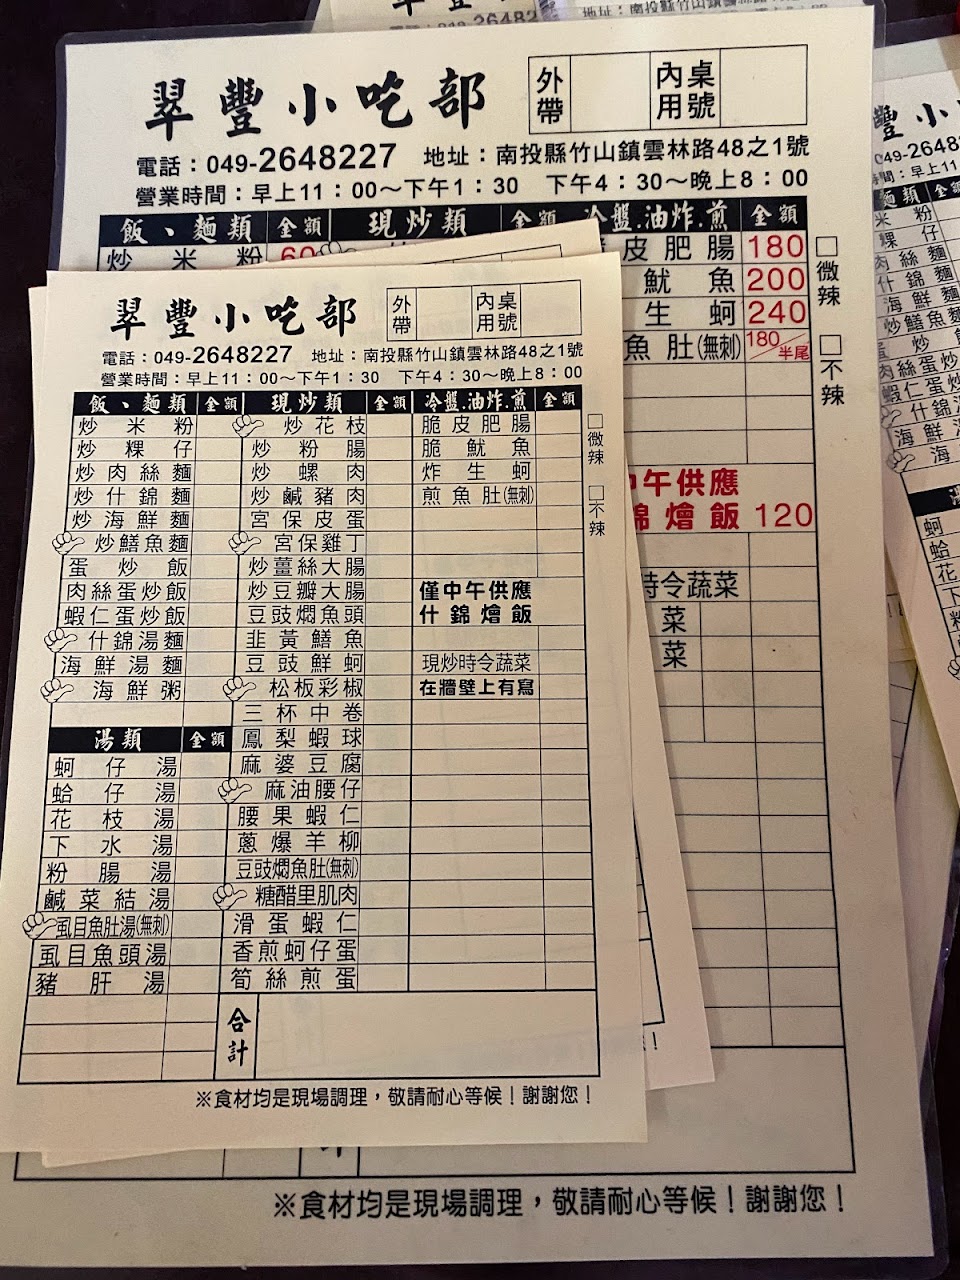 翠豐小吃部
外帶
內用
桌號
電話：049-2648227 地址：南投縣竹山鎮雲林路48之1號
營業時間：早上11：00～下午1：30 下午4：30～晚上8：00
飯、麵類 金額 現炒類 金額 冷盤.油炸.煎 金額
炒米粉 60
皮肥腸 180
魷魚 200
生蚵 240
魚肚(無刺) 180/半尾
□微辣
□不辣
中午供應
錦燴飯 120
時令蔬菜
菜
菜
※食材均是現場調理，敬請耐心等候！謝謝您！
翠豐小吃部
外帶
內用
桌號
電話：049-2648227 地址：南投縣竹山鎮雲林路48之1號
營業時間：早上11：00～下午1：30 下午4：30～晚上8：00
飯、麵類 金額
炒米粉
炒粿仔
炒肉絲麵
炒什錦麵
炒海鮮麵
炒鱔魚麵
蛋炒飯
肉絲蛋炒飯
蝦仁蛋炒飯
什錦湯麵
海鮮湯麵
海鮮粥
湯類 金額
蚵仔湯
蛤仔湯
花枝湯
下水湯
粉腸湯
鹹菜結湯
虱目魚肚湯(無刺)
虱目魚頭湯
豬肝湯
現炒類 金額
炒花枝
炒粉腸
炒螺肉
炒鹹豬肉
宮保皮蛋
宮保雞丁
炒薑絲大腸
炒豆瓣大腸
豆豉燜魚頭
韭黃鱔魚
豆豉鮮蚵
松板彩椒
三杯中卷
鳳梨蝦球
麻婆豆腐
麻油腰仔
腰果蝦仁
蔥爆羊柳
豆豉燜魚肚(無刺)
糖醋里肌肉
滑蛋蝦仁
香煎蚵仔蛋
筍絲煎蛋
冷盤.油炸.煎 金額
脆皮肥腸
脆魷魚
炸生蚵
煎魚肚(無刺)
僅中午供應
什錦燴飯
現炒時令蔬菜
在牆壁上有寫
□微辣
□不辣
合計
※食材均是現場調理，敬請耐心等候！謝謝您！